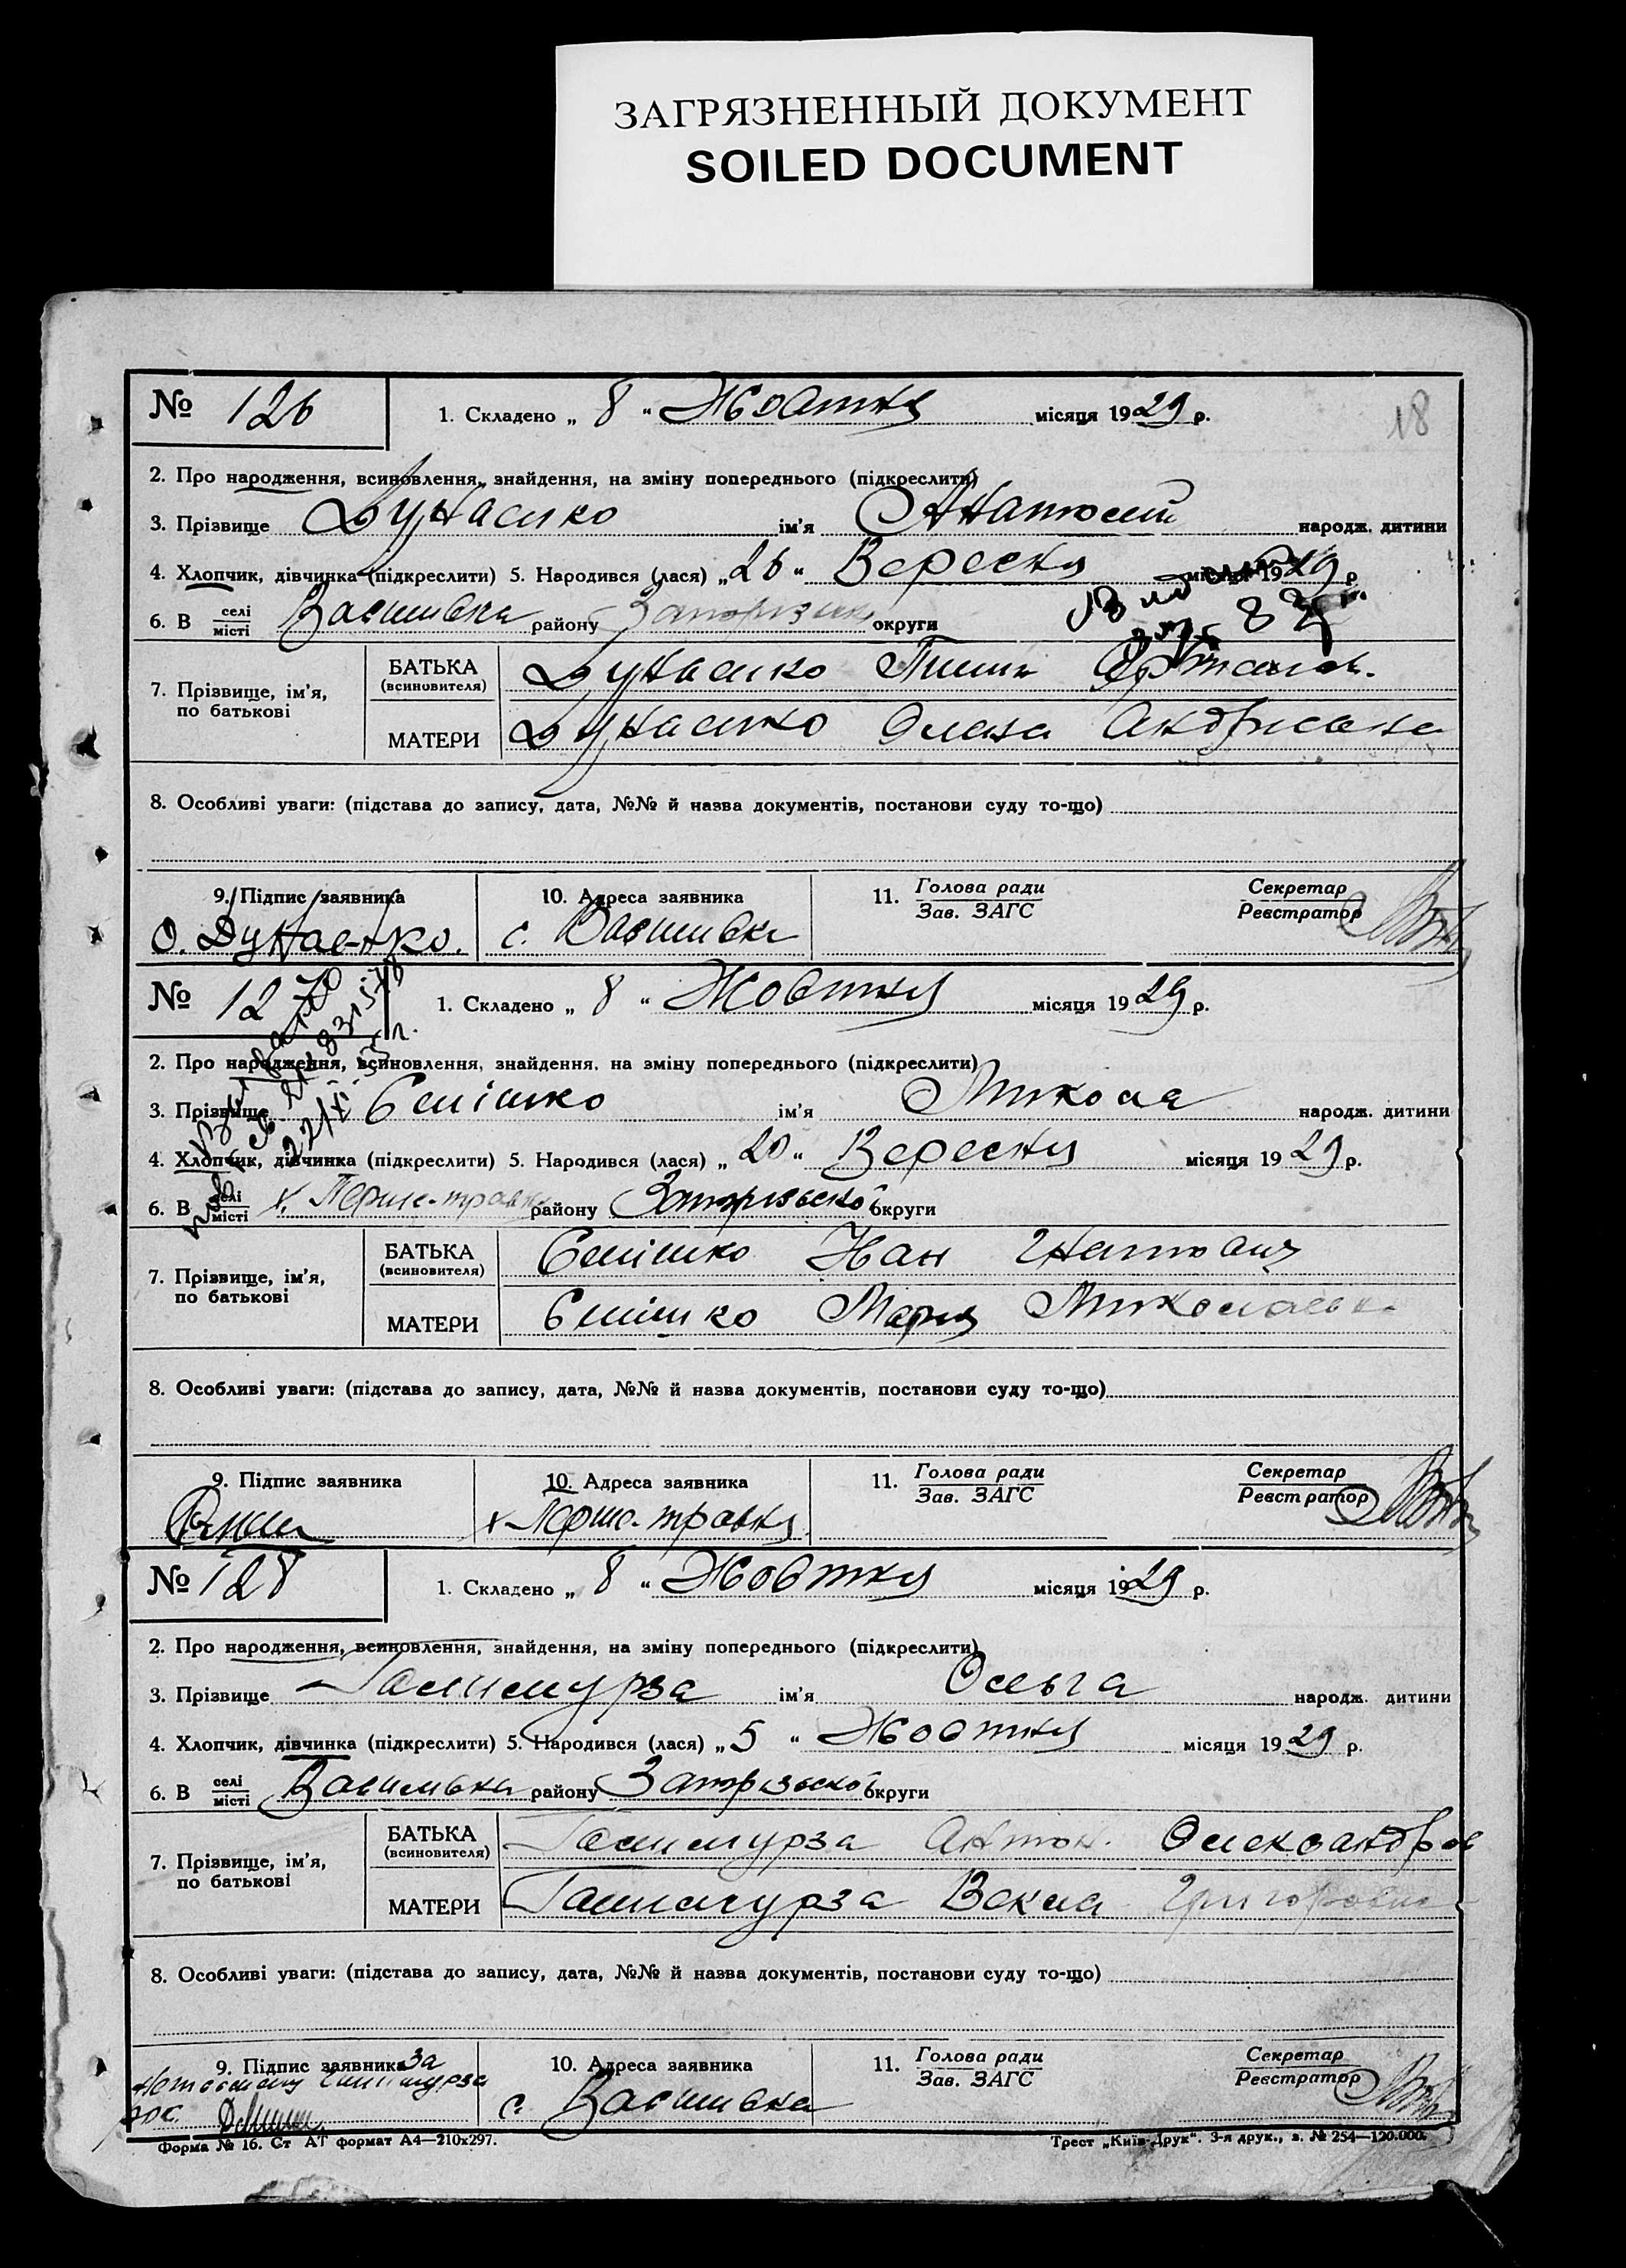 ЗАГРЯЗНЕННЫЙ ДОКУМЕНТ
SOILED DOCUMENT
18
№ 126
1. Складено „ 8 “ Жовтня місяця 1929 р.
2. Про народження, всиновлення, знайдення, на зміну попереднього (підкреслити)
3. Прізвище Дунаєнко ім'я Анатолий народж. дитини
4. Хлопчик, дівчинка (підкреслити) 5. Народився (лася) „ 26 “ Вересня місяця 1929 р.
6. В селі/місті Василивка району Запорізьк округи
7. Прізвище, ім'я, по батькові
БАТЬКА (всиновителя) Дунаєнко
МАТЕРИ Дунаєнко Олена Андриевна
8. Особливі уваги: (підстава до запису, дата, №№ й назва документів, постанови суду то-що)
9. Підпис заявника 10. Адреса заявника 11. Голова ради Зав. ЗАГС Секретар Реєстратор
О. Дунаенко. с. Василивка
№ 127
1. Складено „ 8 “ Жовтня місяця 1929 р.
2. Про народження, всиновлення, знайдення, на зміну попереднього (підкреслити)
3. Прізвище ім'я Микола народж. дитини
4. Хлопчик, дівчинка (підкреслити) 5. Народився (лася) „ 20 “ Вересня місяця 1929 р.
6. В селі/місті х. Перше-травня району Запорізької округи
7. Прізвище, ім'я, по батькові
БАТЬКА (всиновителя) Іван Гнатович
МАТЕРИ Мария Миколаевна
8. Особливі уваги: (підстава до запису, дата, №№ й назва документів, постанови суду то-що)
9. Підпис заявника 10. Адреса заявника 11. Голова ради Зав. ЗАГС Секретар Реєстратор
х Перше-травня
№ 128
1. Складено „ 8 “ Жовтня місяця 1929 р.
2. Про народження, всиновлення, знайдення, на зміну попереднього (підкреслити)
3. Прізвище Галимурза ім'я Ольга народж. дитини
4. Хлопчик, дівчинка (підкреслити) 5. Народився (лася) „ 5 “ Жовтня місяця 1929 р.
6. В селі/місті Василивка району Запорізької округи
7. Прізвище, ім'я, по батькові
БАТЬКА (всиновителя) Галимурза Антон Олександров
МАТЕРИ Галимурза Векла Григоровна
8. Особливі уваги: (підстава до запису, дата, №№ й назва документів, постанови суду то-що)
9. Підпис заявника за 10. Адреса заявника 11. Голова ради Зав. ЗАГС Секретар Реєстратор
с. Василивка
Форма № 16. Ст АТ формат А4—210х297.
Трест „Київ-Друк“. 3-я друк., з. № 254—120.000.